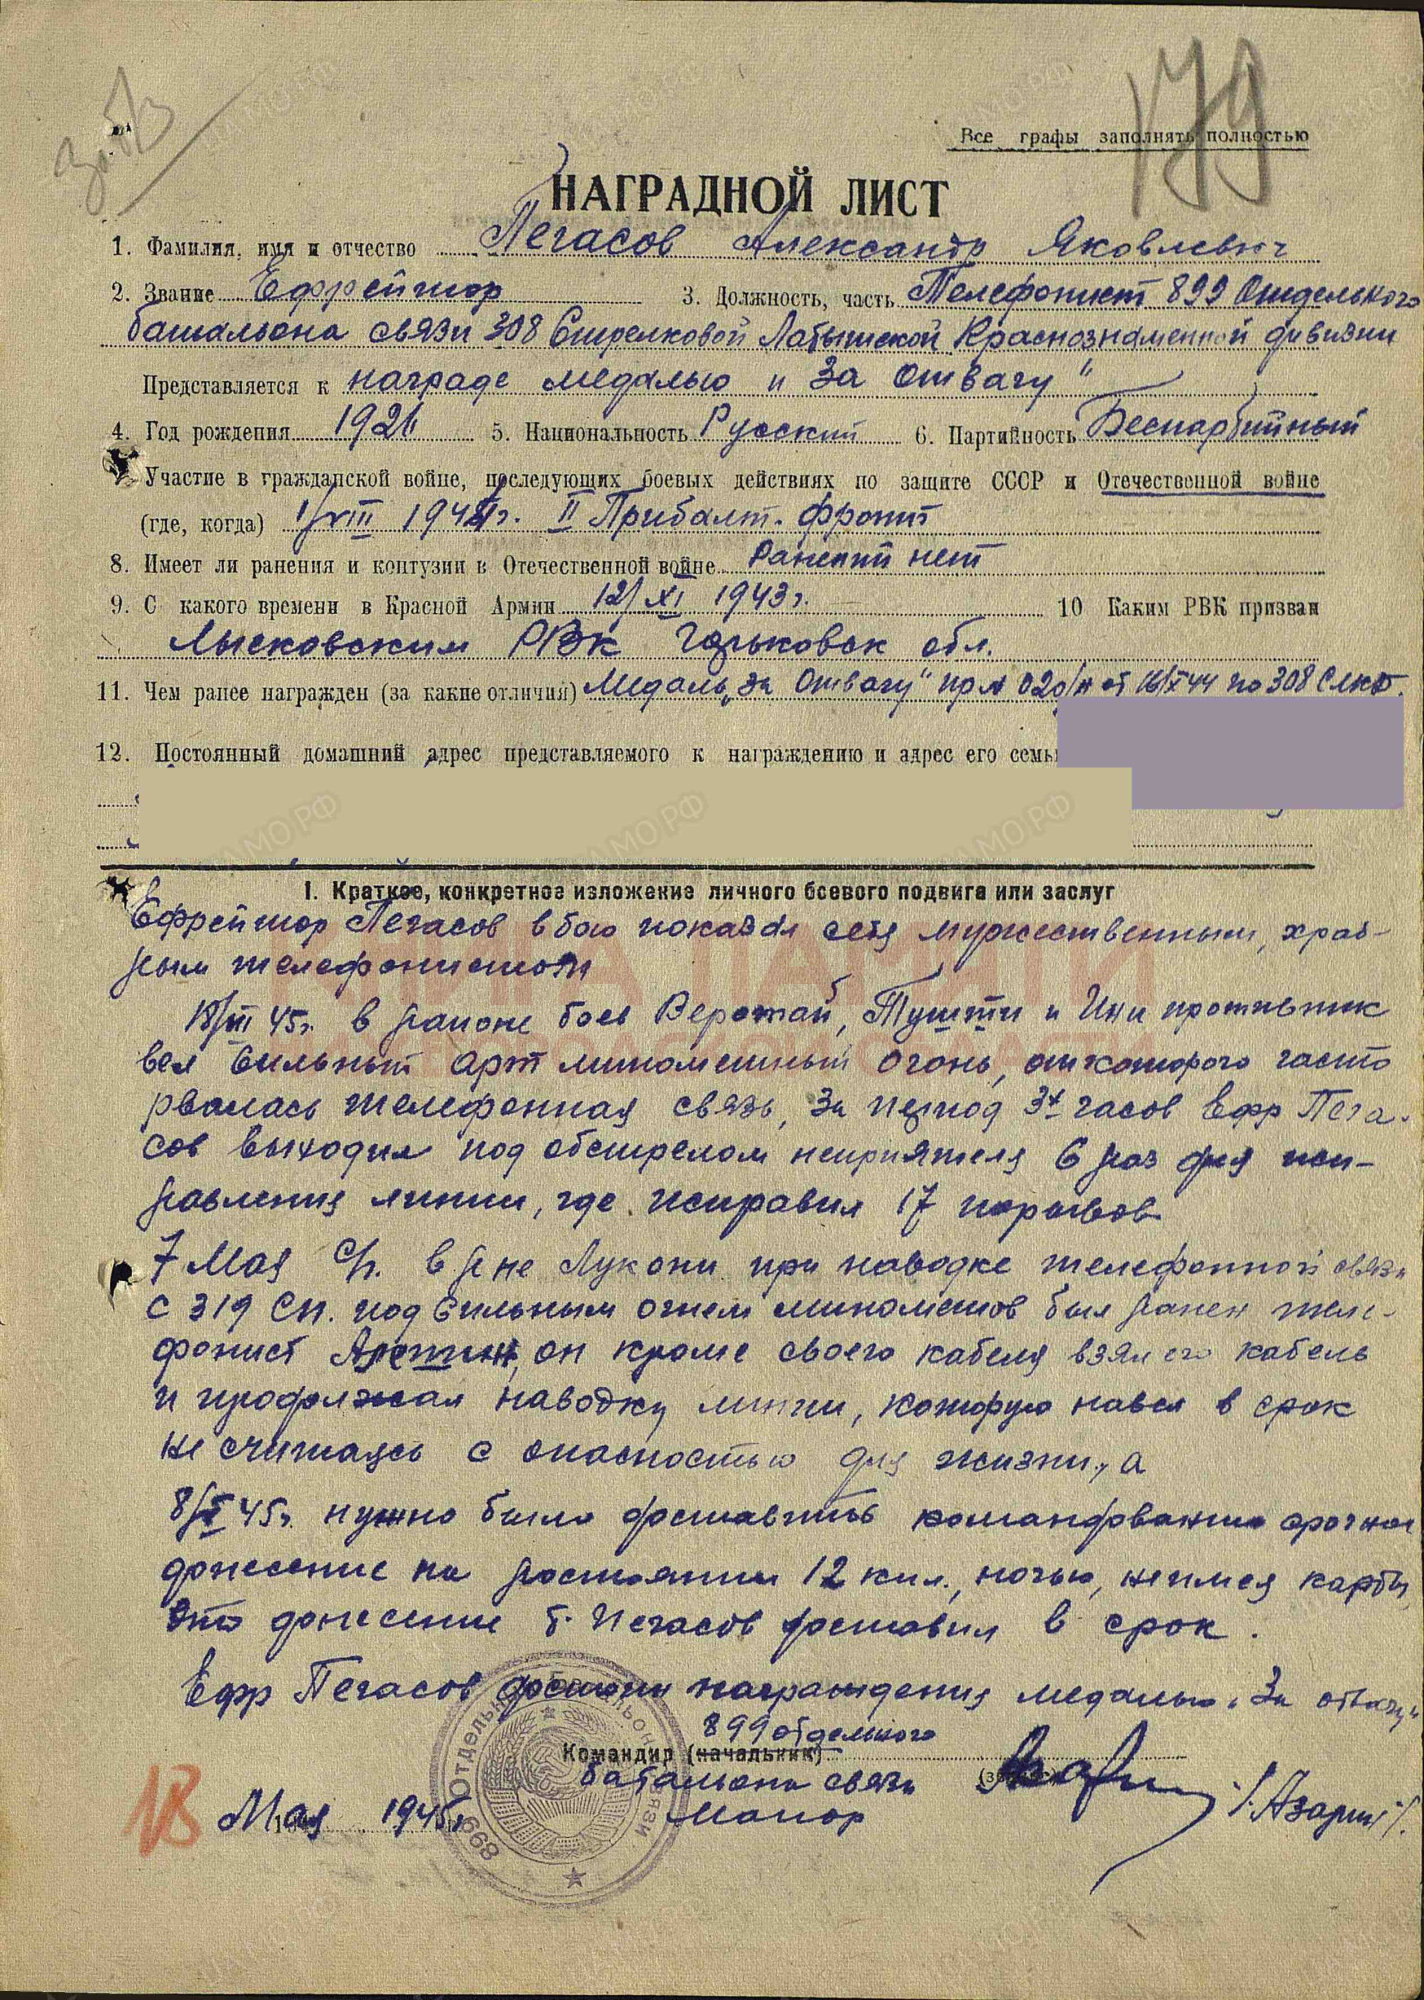 179
Все графы заполнять полностью
НАГРАДНОЙ ЛИСТ
1. Фамилия, имя и отчество Пегасов Александр Яковлевич
2. Звание Ефрейтор 3. Должность, часть Телефонист 899 Отдельного
батальона связи 308 Стрелковой Латышской Краснознаменной дивизии
Представляется к награде медалью „За Отвагу"
4. Год рождения 1926 5. Национальность Русский 6. Партийность Беспартийный
7. Участие в гражданской войне, последующих боевых действиях по защите СССР и Отечественной войне
(где, когда) 1/VIII 1944г. II Прибалт. фронт
8. Имеет ли ранения и контузии в Отечественной войне Ранений нет
9. С какого времени в Красной Армии 12/XI 1943г. 10 Каким РВК призван
Лысковским РВК Горьковск обл.
11. Чем ранее награжден (за какие отличия) Медаль „За Отвагу" пр № 020/н от 16/X 44 по 308 Слкд.
12. Постоянный домашний адрес представляемого к награждению и адрес его семьи
I. Краткое, конкретное изложение личного боевого подвига или заслуг
Ефрейтор Пегасов в бою показал себя мужественным, храб-
рым телефонистом
18/III 45г. в районе боев Тушти и Ини противник
вел сильный арт минометный огонь, от которого часто
рвалась телефонная связь, За период 3х часов Ефр Пега-
сов выходил под обстрелом неприятеля 6 раз для исп-
равления линии, где исправил 17 порывов
7 Мая с/г. в р-не Лукони при наводке телефонной связи
с 319 СП. под сильным огнем минометов был ранен теле-
фонист он кроме своего кабеля взял его кабель
и продолжал наводку линии, которую навел в срок
не считаясь с опасностью для жизни, а
8/V 45г. нужно было доставить командованию срочное
донесение на растоянии 12 кил., ночью, не имея карты,
это донесение т. Пегасов доставил в срок.
Ефр Пегасов достоин награждения медалью „За отвагу"
899 отдельного
Командир (начальник)
батальона связи
Майор
/Азарин/.
18 Мая 1945г
899 Отдельный Батальон Связи
КНИГА ПАМЯТИ
НИЖЕГОРОДСКОЙ ОБЛАСТИ
ЦАМО РФ